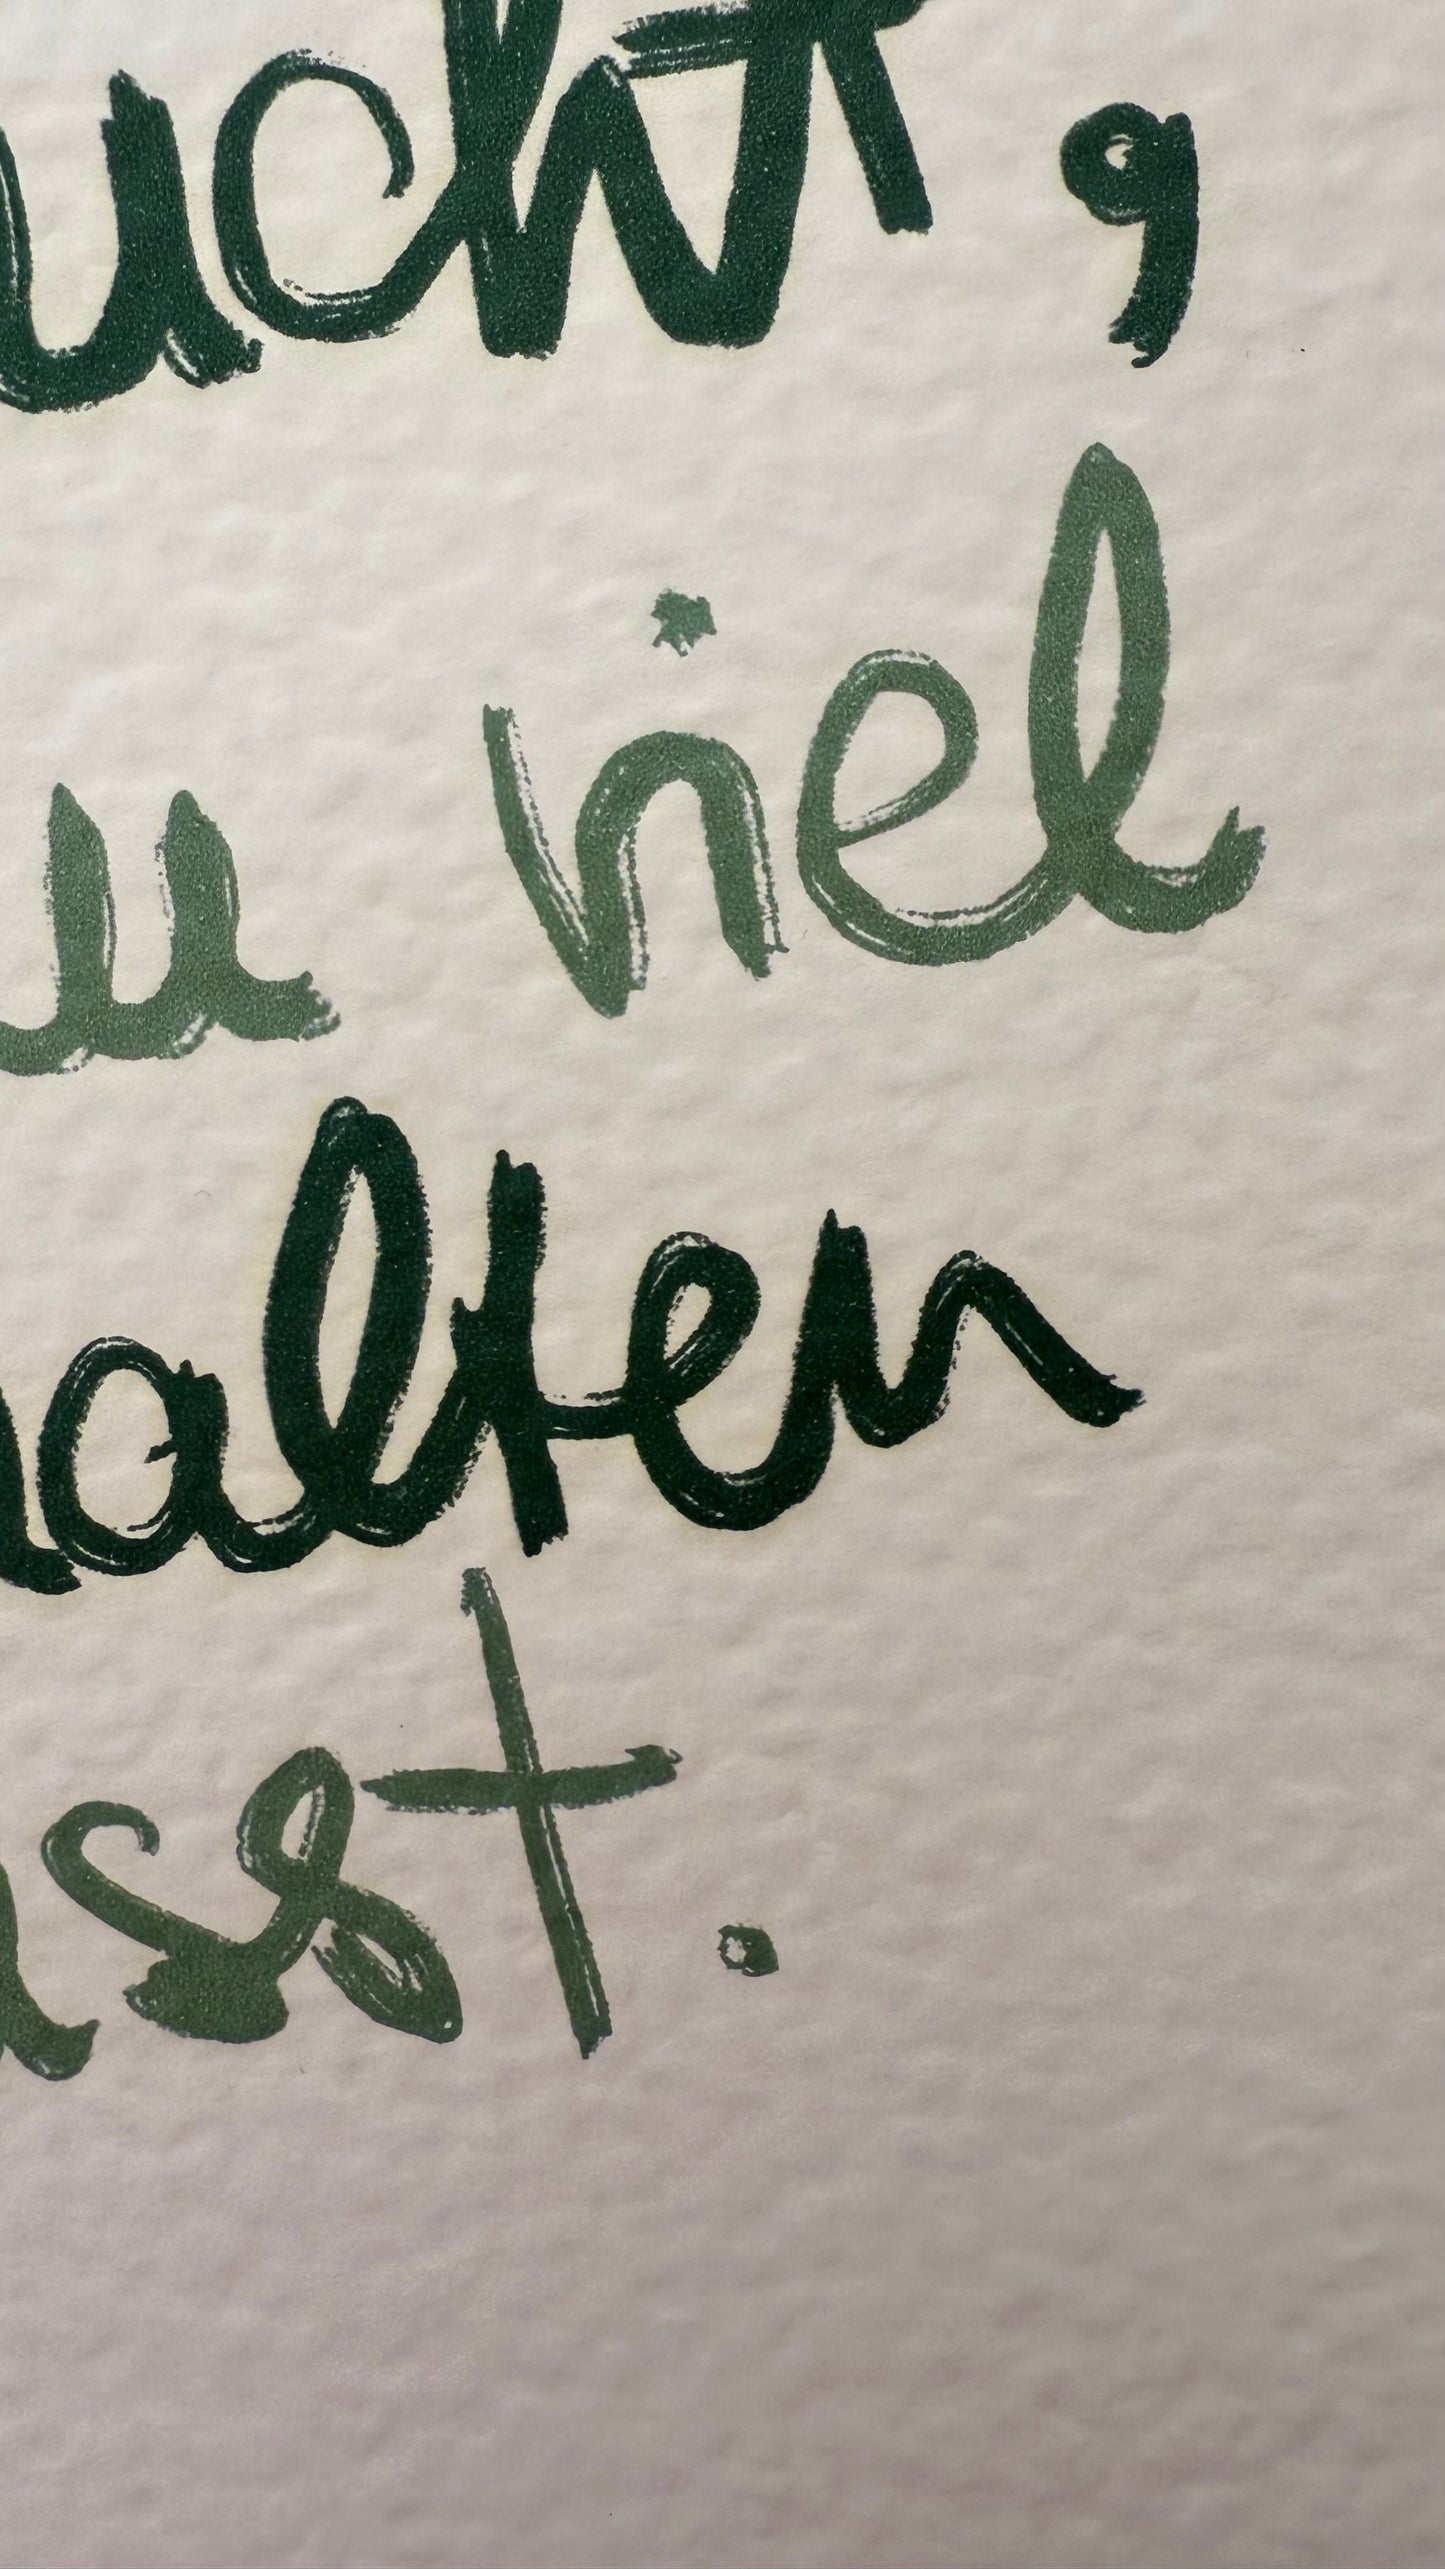 ucht,
u viel
alten
sst.